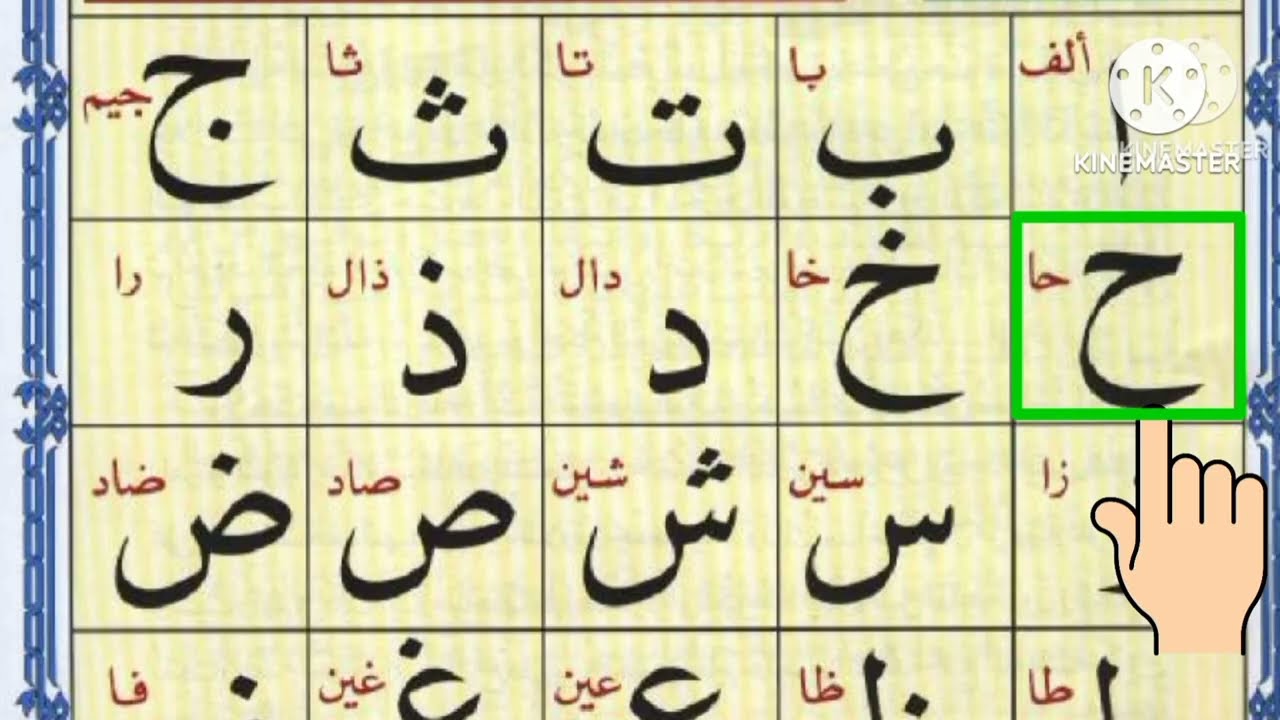 ألف ا با ب تا ت ثا ث جيم ج
KINEMASTER
حا ح خا خ دال د ذال ذ را ر
زا سين س شين ش صاد ص ضاد ض
طا ظا عين ع غين غ فا